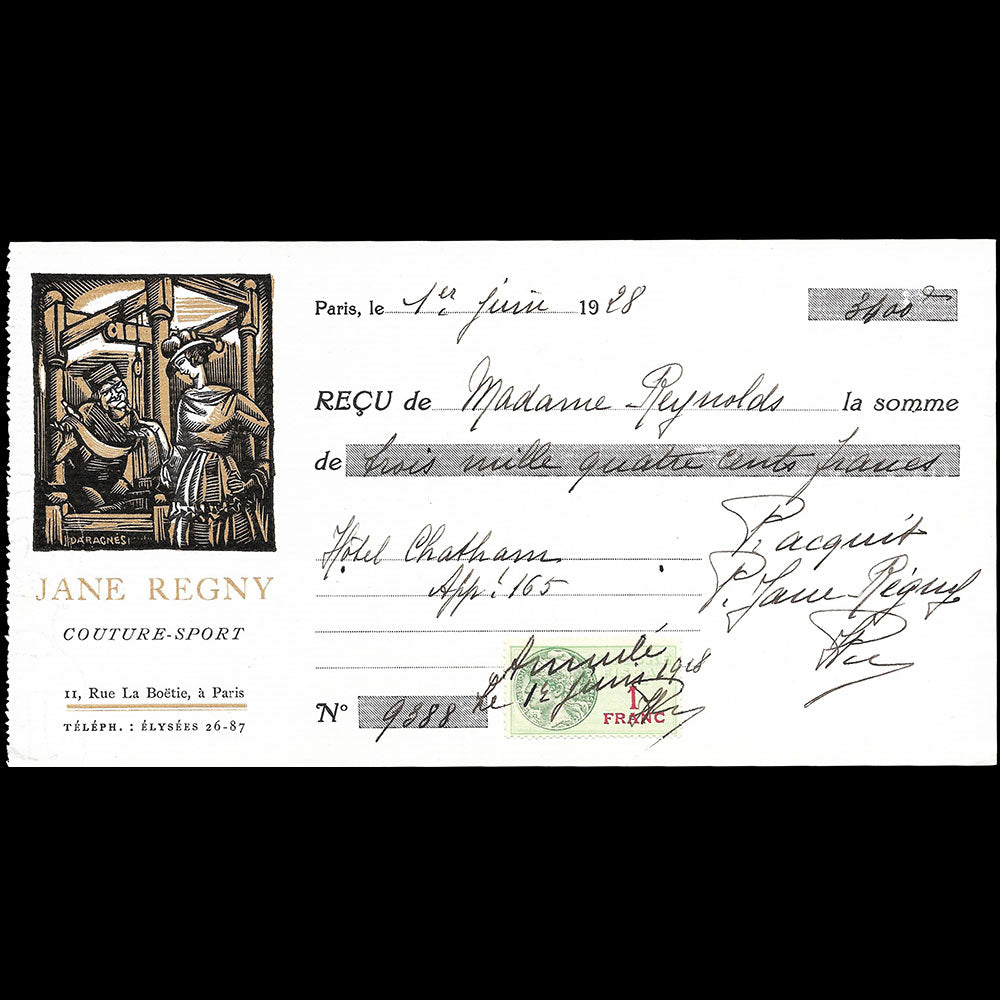 DARAGNES
JANE REGNY
COUTURE-SPORT
11, Rue La Boëtie, à Paris
TÉLÉPH. : ÉLYSÉES 26-87
Paris, le 1er Juin 1928 3400
REÇU de Madame Reynolds la somme
de trois mille quatre cents francs
Hôtel Chatham
Appt. 165
P. acquit
P. Jane Régny
Annulé
le 1er Juin 1928
Nº 9388
1
FRANC